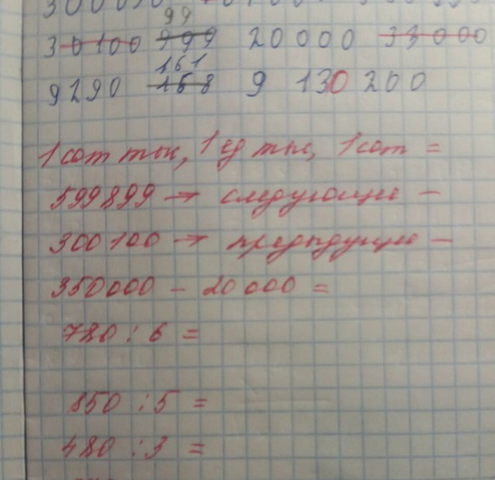 99
30100 999 20000 33000
161
9290 168 9 130 200
1 сот тыс, 1 ед тыс, 1 сот =
599899 → следующее –
300100 → предыдущее –
350000 – 20000 =
780 : 6 =
850 : 5 =
480 : 3 =